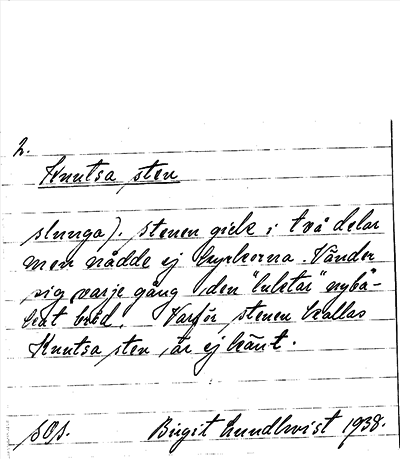 2.
Knutsa sten
slunga). Stenen gick i två delar
men nådde ej kyrkorna. Vänder
sig varje gång den "luktar" nyba-
kat bröd. Varför stenen kallas
Knutsa sten, är ej känt.
sos. Birgit Lundkvist 1938.